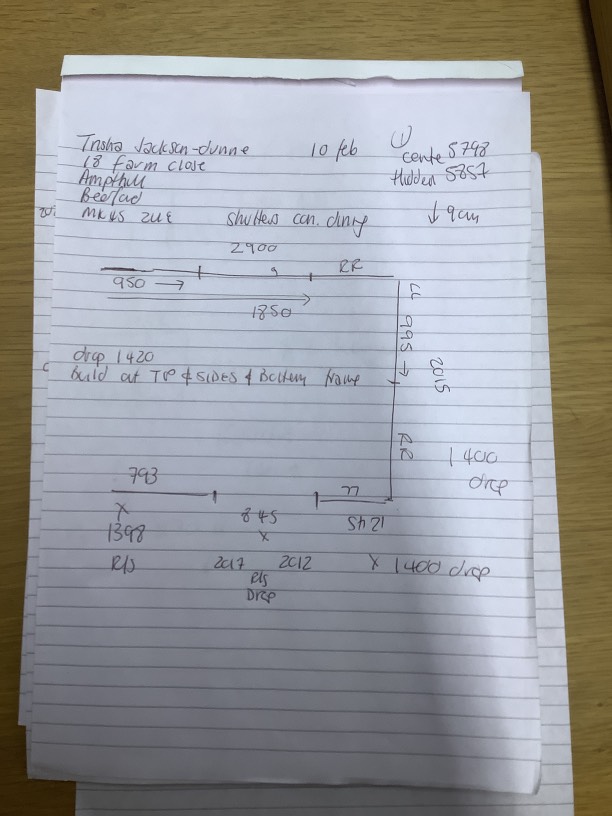 Trisha Jackson-dunne 10 feb ①
18 farm close cente 5798
Ampthill Hidden 5857
MK45 2UE shutters ↓ 9cm
2900
RR
950 →
1850
LL 995 → 2015
drop 1420
Build at TOP & SIDES & Bottom frame
RR
1400
drop
793 LL
X 845 1245
1398 X
R/S 2017 2012 X 1400 drop
R/S
Drop